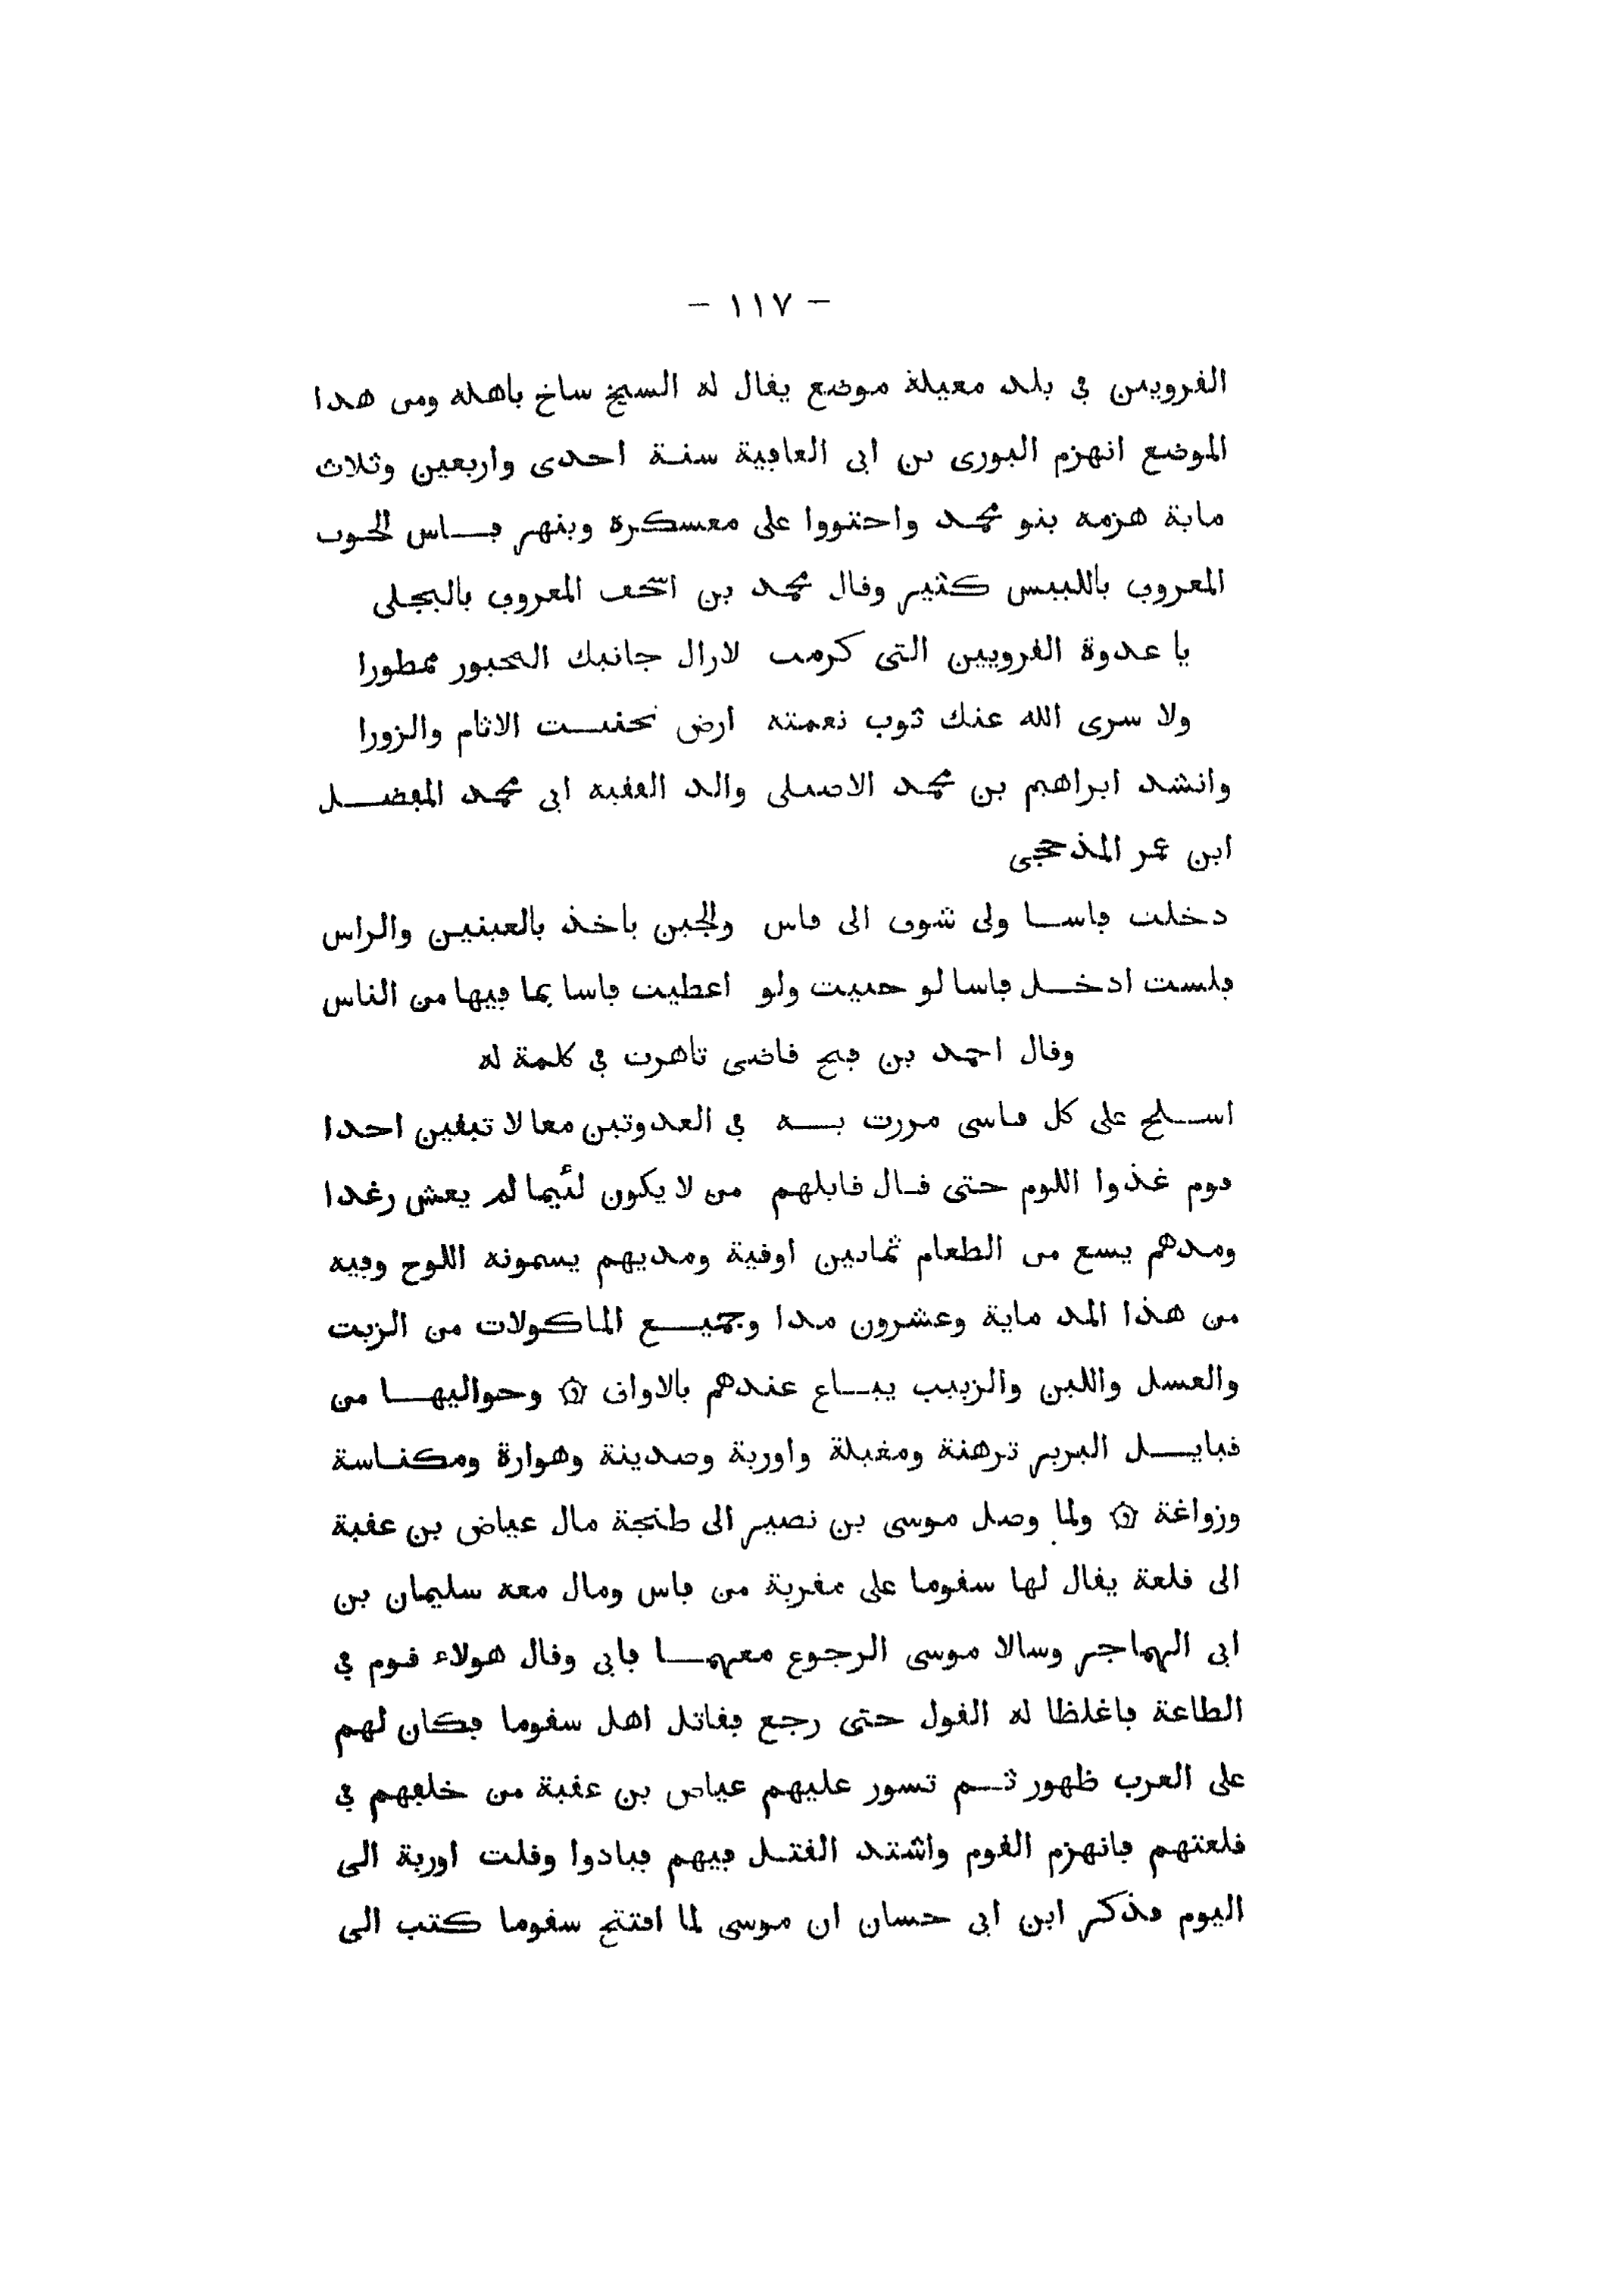 - ١١٧ -
القرويين في بلد مغيلة موضع يقال له السيخ ساخ باهله ومن هذا
الموضع انهزم البورى بن ابى العافية سنة احدى واربعين وثلاث
ماية هزمه بنو محمد واحتووا على معسكرة وبنهر فاس الحوت
المعروف باللبيس كثير وقال محمد بن اسحق المعروف بالبجلى
يا عدوة القرويين التى كرمت لازال جانبك المحبور ممطورا
ولا سرى الله عنك ثوب نعمته ارض تجنبت الاثام والزورا
وانشد ابراهيم بن محمد الاصيلى والد الفقيه ابى محمد المفضل
ابن عمر المذحجى
دخلت فاسا ولى شوق الى فاس والجبن ياخذ بالعينين والراس
فلست ادخل فاسا لو حييت ولو اعطيت فاسا بما فيها من الناس
وقال احمد بن فتح قاضى تاهرت في كلمة له
اسلح على كل فاسى مررت به في العدوتين معا لا تبقين احدا
قوم غذوا اللوم حتى قال قايلهم من لا يكون لئيما لم يعش رغدا
ومدهم يسع من الطعام ثمانين اوقية ومديهم يسمونه اللوح وفيه
من هذا المد ماية وعشرون مدا وجميع الماكولات من الزيت
والعسل واللبن والزبيب يباع عندهم بالاواق ۞ وحواليها من
قبايل البربر ترهنة ومغيلة واوربة وصدينة وهوارة ومكناسة
وزواغة ۞ ولما وصل موسى بن نصير الى طنجة مال عياض بن عقبة
الى قلعة يقال لها سقوما على مقربة من فاس ومال معه سليمان بن
ابى المهاجر وسالا موسى الرجوع معهما فابى وقال هولاء قوم في
الطاعة فاغلظا له القول حتى رجع فقاتل اهل سقوما فكان لهم
على العرب ظهور ثم تسور عليهم عياض بن عقبة من خلفهم في
قلعتهم فانهزم القوم واشتد القتل فيهم فبادوا وقلت اوربة الى
اليوم فذكر ابن ابى حسان ان موسى لما افتتح سقوما كتب الى